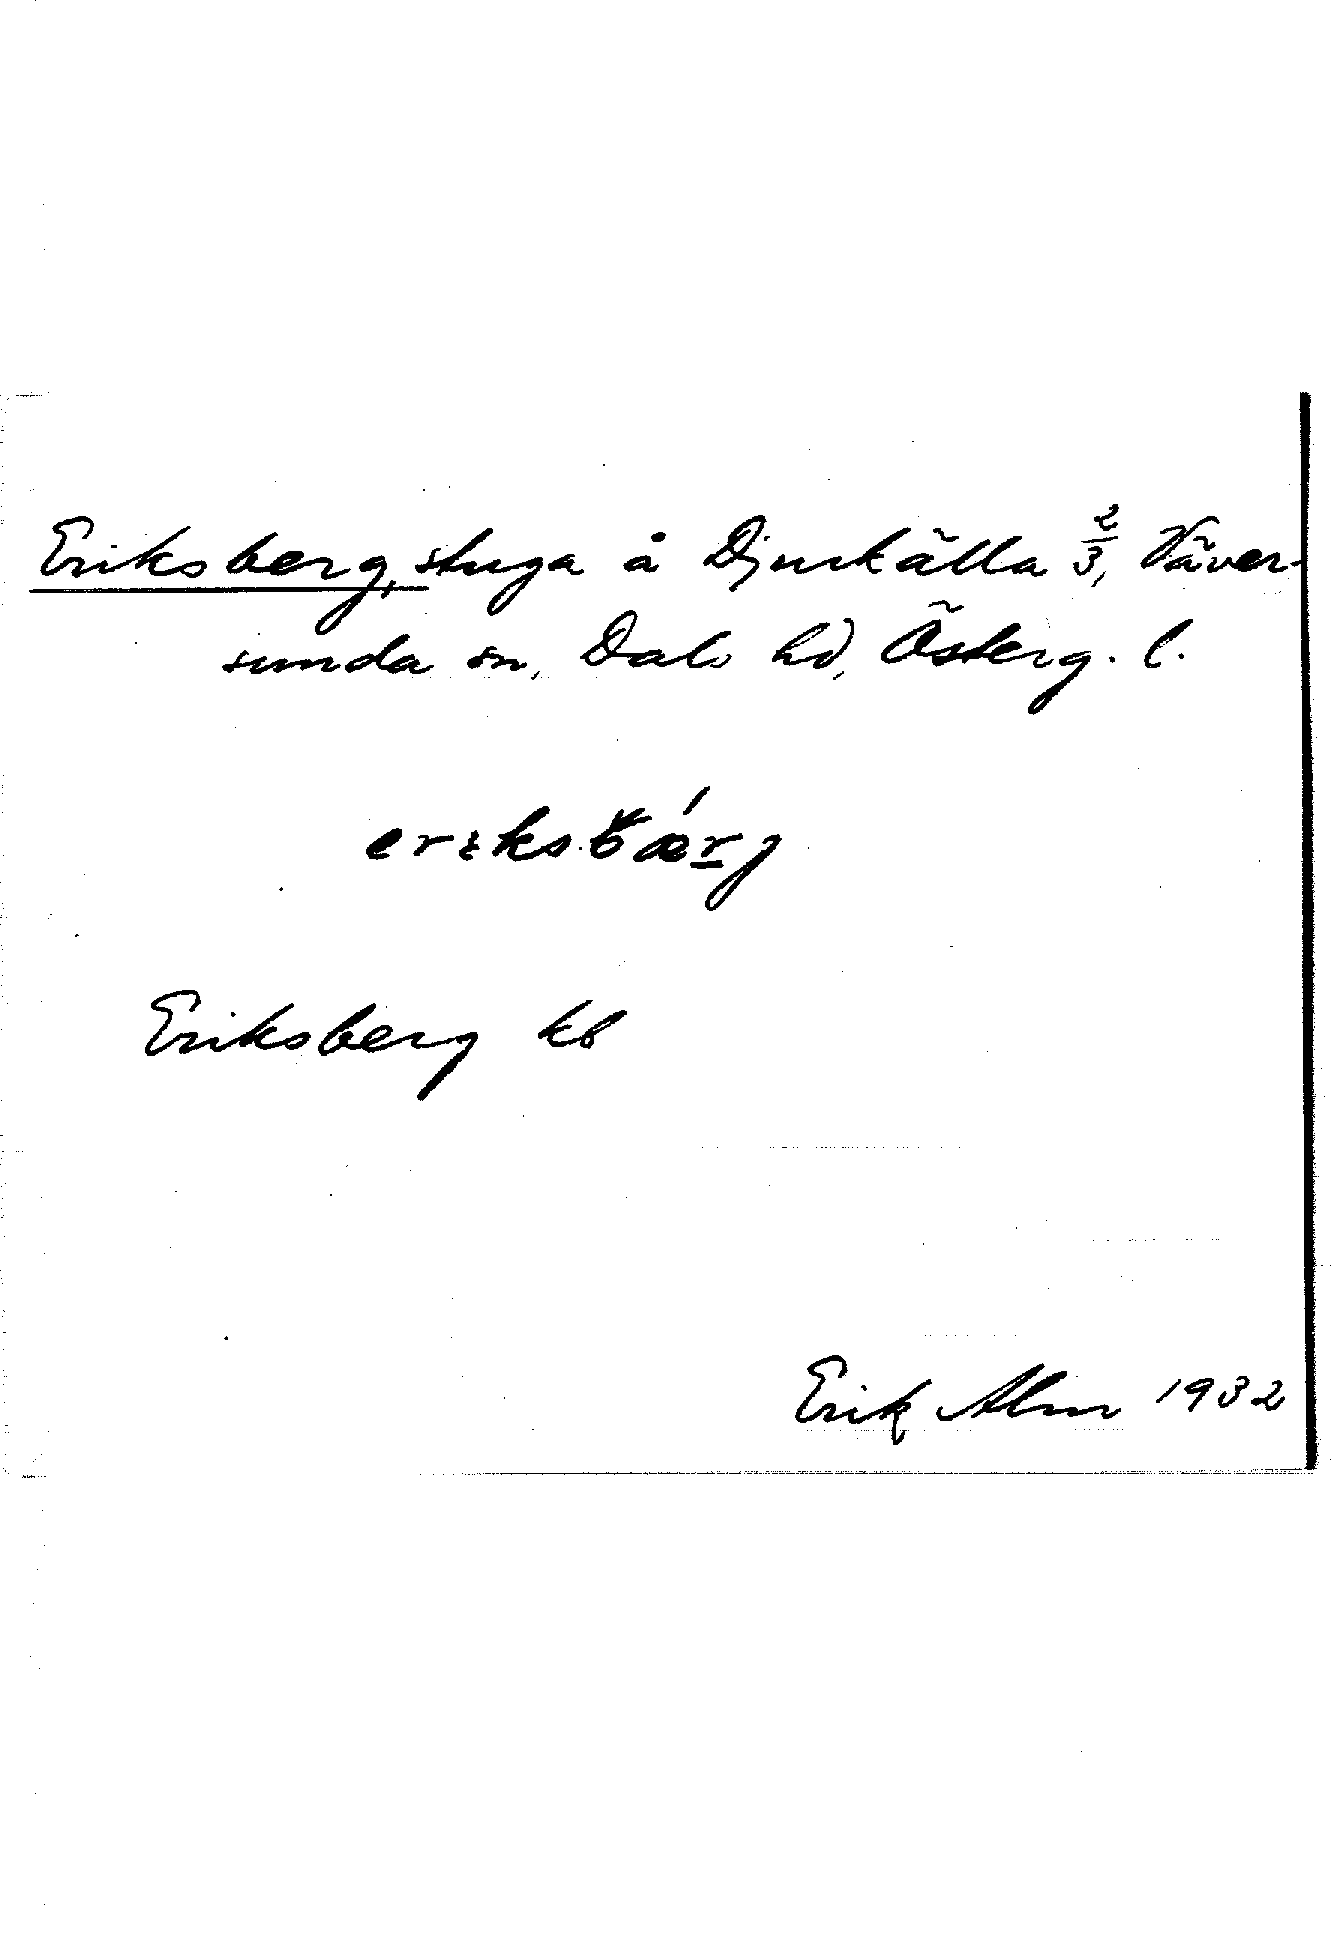 Eriksberg, stuga å Djurkälla 2/3, Väver-
sunda sn, Dals hd, Österg. l.
Eriksberg kb
Erik Alm 1932